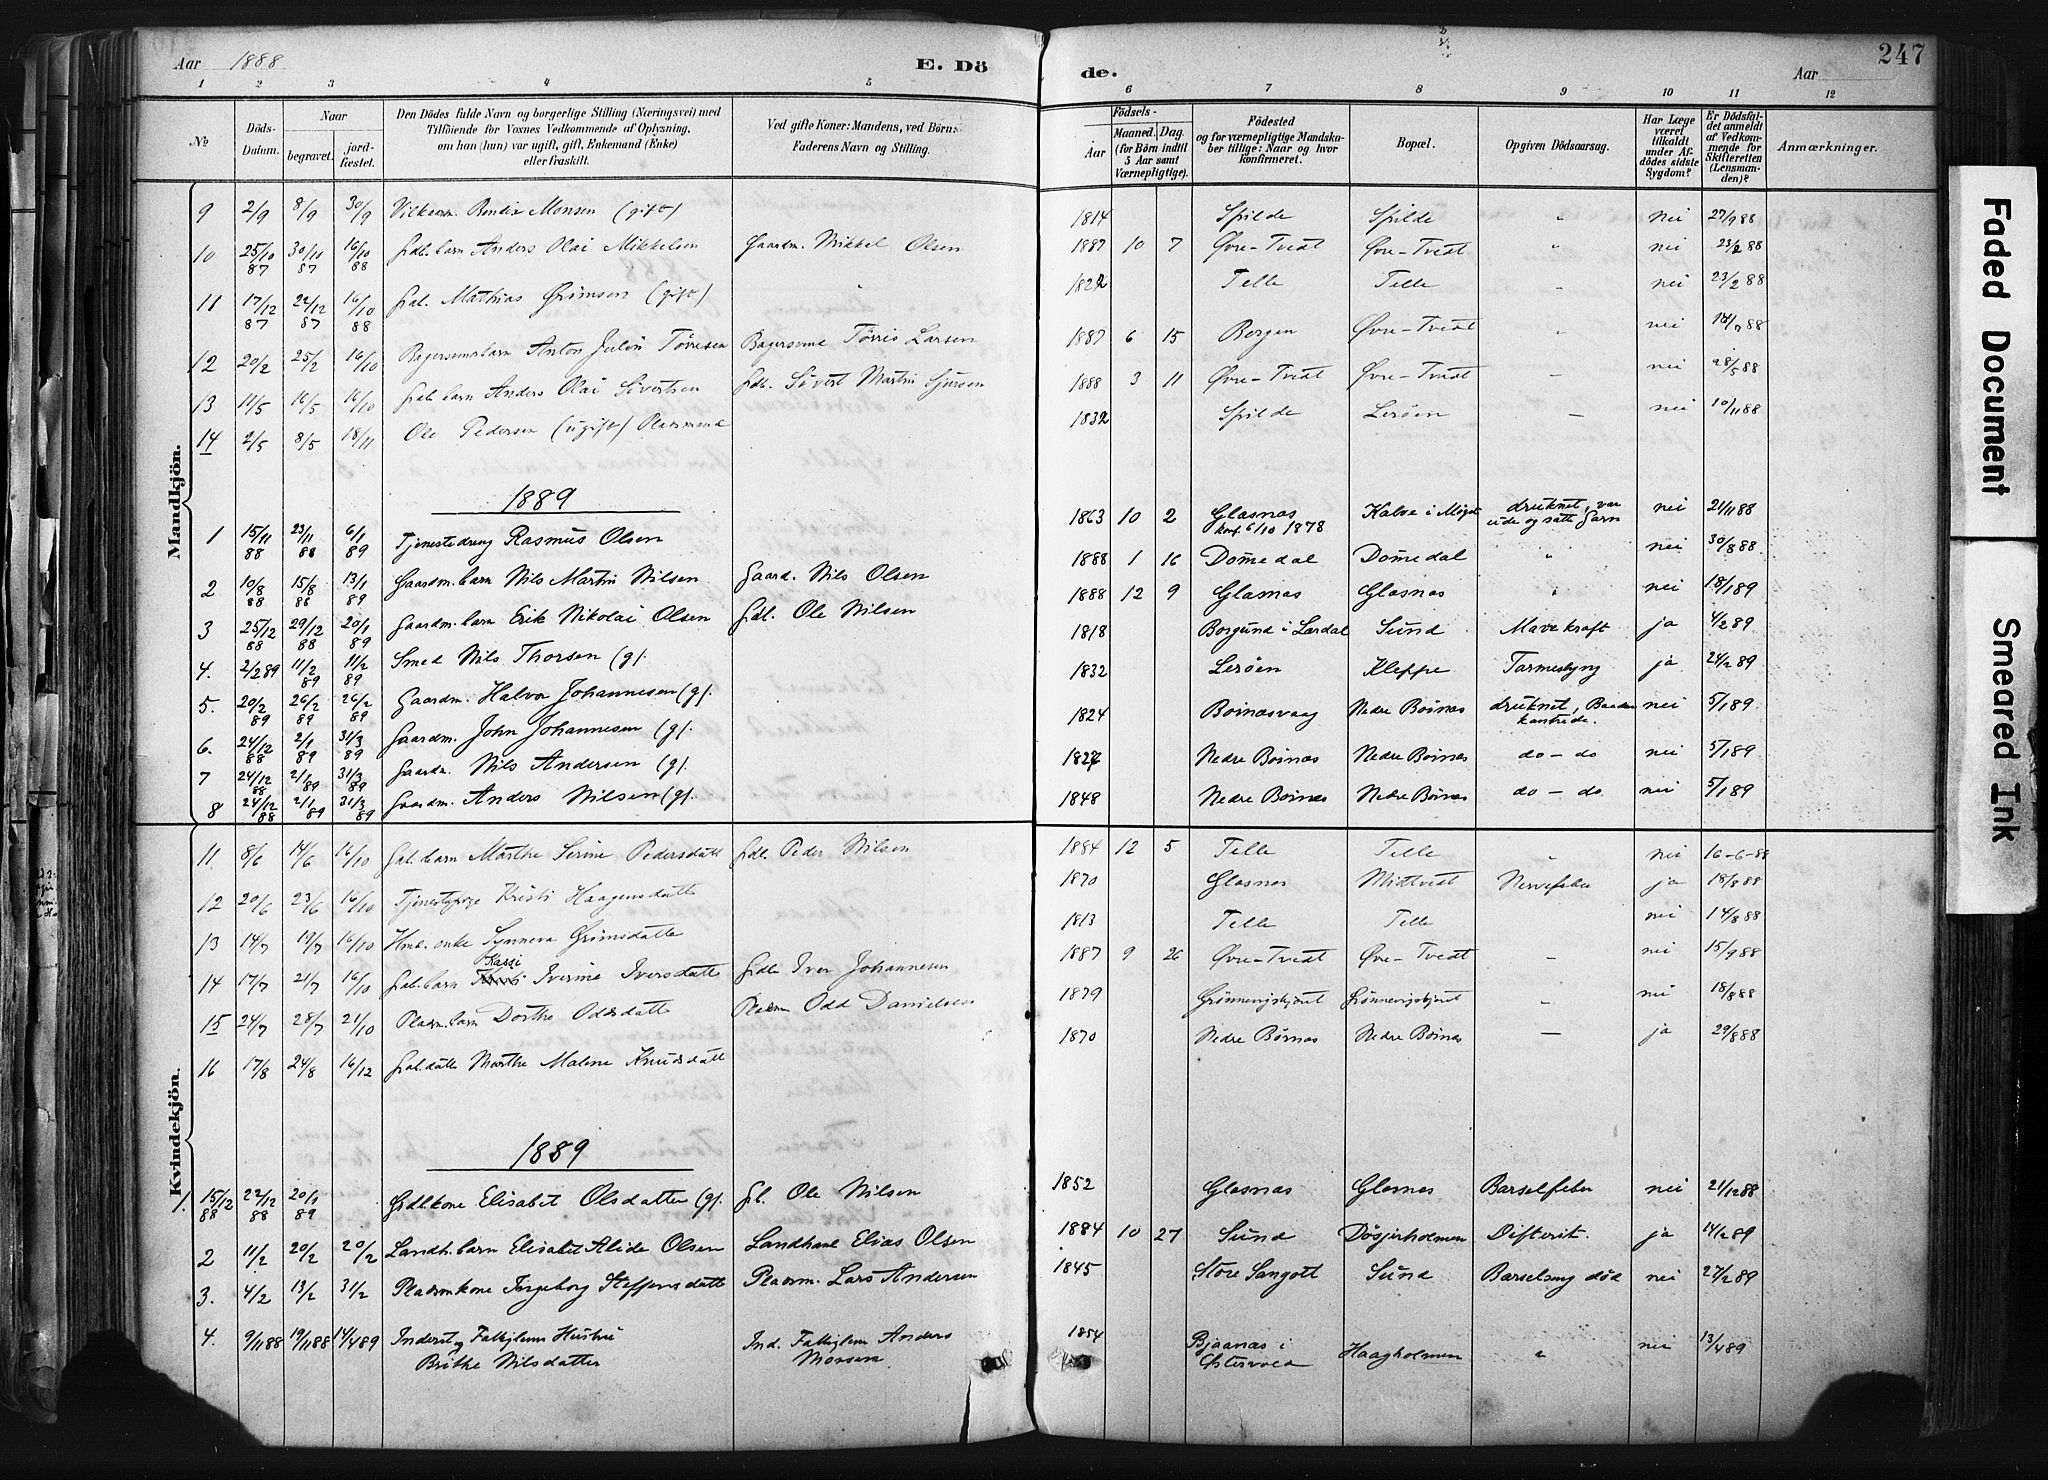 Aar 1888 E. Döde. Aar 247
1 2 3 4 5 6 7 8 9 10 11 12
No Döds-Datum. Naar begravet. jordfæstet. Den Dödes fulde Navn og borgerlige Stilling (Næringsvei) med Tilföiende for Voxnes Vedkommende af Oplysning, om han (hun) var ugift, gift, Enkemand (Enke) eller fraskilt. Ved gifte Koner: Mandens, ved Börn: Faderens Navn og Stilling. Födsels- Aar Maaned. Dag. (for Börn indtil 5 Aar samt Værnepligtige). Födested og for værnepligtige Mandskaber tillige: Naar og hvor konfirmeret. Bopæl. Opgiven Dödsaarsag. Har Læge været tilkaldt under Afdödes sidste Sygdom? Er Dödsfaldet anmeldt af Vedkommende for Skifteretten (Lensmanden)? Anmærkninger.
Mandkjön.
9 2/9 8/9 30/9 Bendix Monsen (gift) 1814 Spilde Spilde " nei 27/9 88
10 25/10 87 30/10 87 16/10 88 Gdb. barn Anders Olai Mikkelsen Gaardm. Mikkel Olsen 1887 10 7 Øvre-Tvedt Øvre-Tvedt " nei 23/2 88
11 17/12 87 22/12 87 16/10 88 Mathias Grimsen (gift) " 1822 Telle Telle " nei 23/2 88
12 20/2 25/2 16/10 Anton Julin Tørresen Tørris Larsen 1887 6 15 Bergen Øvre-Tvedt " nei
13 11/5 16/5 16/10 barn Anders Olai Sivertsen Gdb. Sivert Martin Sjursen 1888 3 11 Øvre-Tvedt Øvre-Tvedt — nei 28/5 88
14 2/5 8/5 18/11 Ole Pedersen (ugift) Pladsmand 1832 Spilde Lerøen — nei 10/11 88
1889
1 15/11 88 23/11 88 6/1 89 Tjenestedreng Rasmus Olsen 1863 10 2 Glæsnæs konf. 6/10 1878 Kalve i druknet, var ude og satte Garn nei 21/11 88
2 10/8 88 15/8 88 13/1 89 Gaardm. barn Nils Martin Nilsen Gaard. Nils Olsen 1888 1 16 Domedal Domedal " nei 30/8 88
3 25/12 88 29/12 88 20/1 89 Gaardm. barn Erik Nikolai Olsen Gdb. Ole Nilsen 1888 12 9 Glæsnæs Glæsnæs " nei 18/1 89
4. 2/2 89 11/2 89 11/2 89 Smed Nils Thorsen (g). 1818 Borgund i Lærdal Sund Mavekræft ja 4/2 89
5. 20/2 89 26/2 89 26/2 89 Gaardm. Halvor Johannesen (g). 1832 Lerøen Kleppe Tarmeslyng ja 24/2 89
6. 24/12 88 2/1 89 31/3 89 Gaardm. John Johannesen (g). 1824 Bornæsvaag Nedre Børnæs druknet, Baaden kantrede. nei 5/1 89
7 24/12 88 2/1 89 31/3 89 Gaardm. Nils Andersen (g). 1827 Nedre Børnæs Nedre Børnæs do — do nei 5/1 89
8 24/12 88 2/1 89 31/3 89 Gaardm. Anders Nilsen (g). 1848 Nedre Børnæs Nedre Børnæs do — do nei 5/1 89
Kvindekjön.
11 8/6 14/6 16/10 barn Marthe Serine Pedersdatt Gdb. Peder Nilsen 1884 12 5 Telle Telle " nei 16-6-88
12 20/6 23/6 16/10 Tjenestepige Kristi Haagensdatte 1870 Glæsnæs Midtvedt Nervefeber ja 18/8 88
13 14/7 19/7 16/10 enke Synneva Grimsdatte 1813 Telle Telle nei 14/8 88
14 17/7 21/7 16/10 barn Kassi Iverine Iversdatte Gdb. Iver Johannesen 1887 9 26 Øvre-Tvedt Øvre-Tvedt — nei 15/9 88
15 24/7 28/7 21/10 Pladsm. barn Dorthe Oddsdatte Pladsm Odd Danielsen 1879 " nei 18/8 88
16 17/8 24/8 16/12 datte Marthe Malene Knudsdatt 1870 Nedre Børnæs Nedre Børnæs — ja 29/8 88
1889
1. 15/12 88 22/12 88 20/1 89 Grdbkone Elisabet Olsdatter (g). Gb. Ole Nilsen 1852 Glæsnæs Glæsnæs Barselfeber nei 21/12 88
2 11/2 20/2 20/2 Landh. barn Elisabet Alida Olsen Landhanl Elias Olsen 1884 10 27 Sund Døsjerholmen Difterit. ja 14/2 89
3. 4/2 13/2 31/2 Pladsmkone Ingeborg Steffensdatt Pladsm. Lars Andersen 1845 Store Sangolt Sund Barselseng død nei 27/2 89
4. 9/11 88 19/11 88 14/4 89 Inderst og Fattiglem Hustru Brithe Nilsdatter Ind. Fattiglem Anders Monsen 1854 Bjaanæs i Haagholmen " nei 13/4 89
Faded Document
Smeared Ink